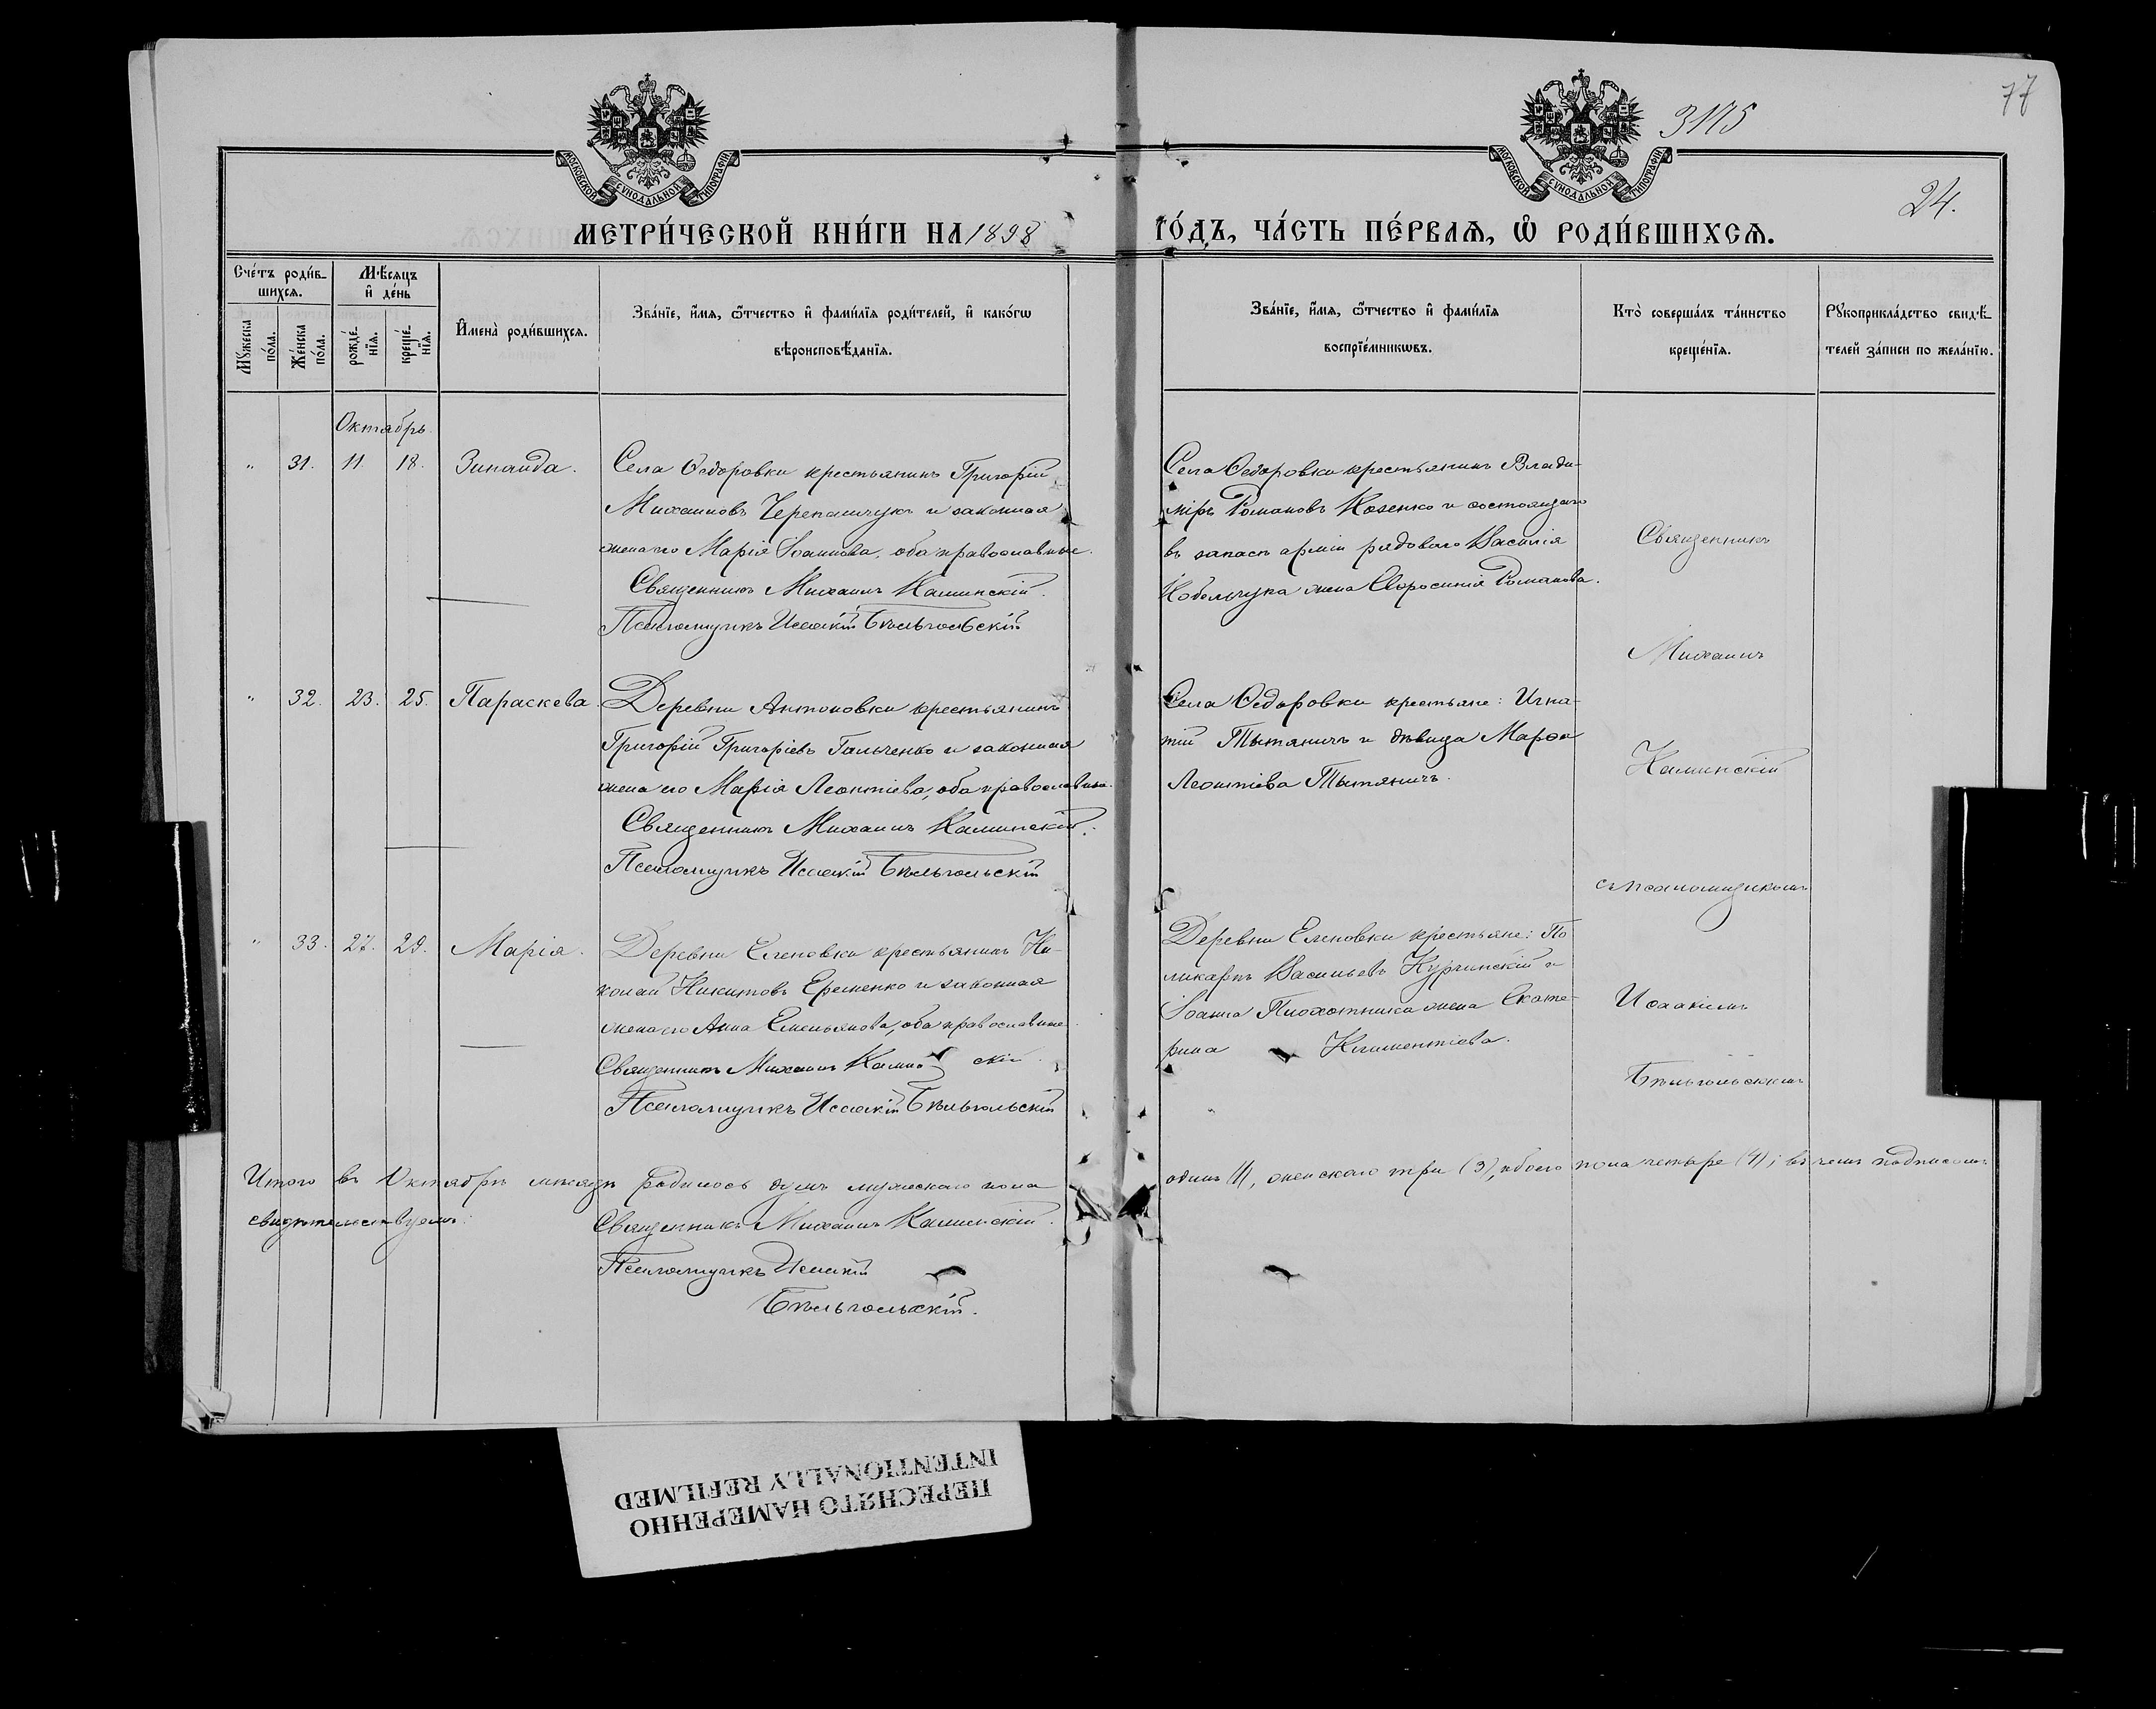 3175
77
24.
МОСКОВСКОЙ СѴНОДАЛЬНОЙ ТИПОГРАФІИ
МОСКОВСКОЙ СѴНОДАЛЬНОЙ ТИПОГРАФІИ
МЕТРИ́ЧЕСКОЙ КНИ́ГИ НА 1898 ГО́ДЪ, ЧА́СТЬ ПЕ́РВАѦ, Ѽ РОДИ́ВШИХСѦ.
Сче́тъ роди́в-
шихсѧ.
Мѣсѧцъ
и҆ де́нь
Мꙋжеска
по́ла.
Же́нска
по́ла.
рожде́-
нїѧ.
креще́-
нїѧ.
И҆мена̀ роди́вшихсѧ.
Зва́нїе, и҆́мѧ, ѿтчество и҆ фами́лїѧ роди́телей, и҆ како́гѡ
вѣроисповѣ́данїѧ.
Зва́нїе, и҆́мѧ, ѿтчество и҆ фами́лїѧ
воспрїе́мникѡвъ.
Кто̀ соверша́лъ та́инство
креще́нїѧ.
Рꙋкоприкла́дство свидѣ́-
телей за́писи по жела́нїю.
Октябрь
" 31. 11. 18. Зинаида.
Села Ѳедоровки крестьянинъ Григорій
Михаиловъ Черепамчукъ и законная
жена его Марія Іоаннова, оба православные.
Священникъ Михаилъ Каминскій.
Псаломщикъ Исаакій Бѣльгольскій
Села Ѳедоровки крестьянинъ Влади-
міръ Романовъ Козенко и состоящаго
въ запасѣ арміи рядоваго Василія
жена Евфросинія Романова.
" 32. 23. 25. Параскева.
Деревни Антоновки крестьянинъ
Григорій Григоріевъ Гальченко и законная
жена его Марія Леонтіева, оба православные.
Священникъ Михаилъ Каминскій.
Псаломщикъ Исаакій Бѣльгольскій
Села Ѳедоровки крестьяне: Игна-
тій Тытяничъ и дѣвица Марѳа
Леонтіева Тытяничъ.
" 33. 27. 29. Марія.
Деревни Еленовки крестьянинъ Ни-
колай Никитовъ Еременко и законная
жена его Анна Емельянова, оба православные.
Священникъ Михаилъ Камин скій.
Псаломщикъ Исаакій Бѣльгольскій
Деревни Еленовки крестьяне: По
ликарпъ Васильевъ Курчинскій и
Іоанна Пиохотника жена Екате-
рина Климентіева.
Священникъ
Михаилъ
Каминскій
съ псаломщикомъ
Исаакіемъ
Бѣльгольскимъ
Итого въ Октябрѣ мѣсяцѣ родилось душъ мужскаго пола одинъ (1), женскаго три (3), обоего пола четыре (4); въ чемъ подписомъ
свидѣтельствуемъ:
Священникъ Михаилъ Каминскій.
Псаломщикъ Исаакій
Бѣльгольскій.
ПЕРЕСНЯТО НАМЕРЕННО
INTENTIONALLY REFILMED